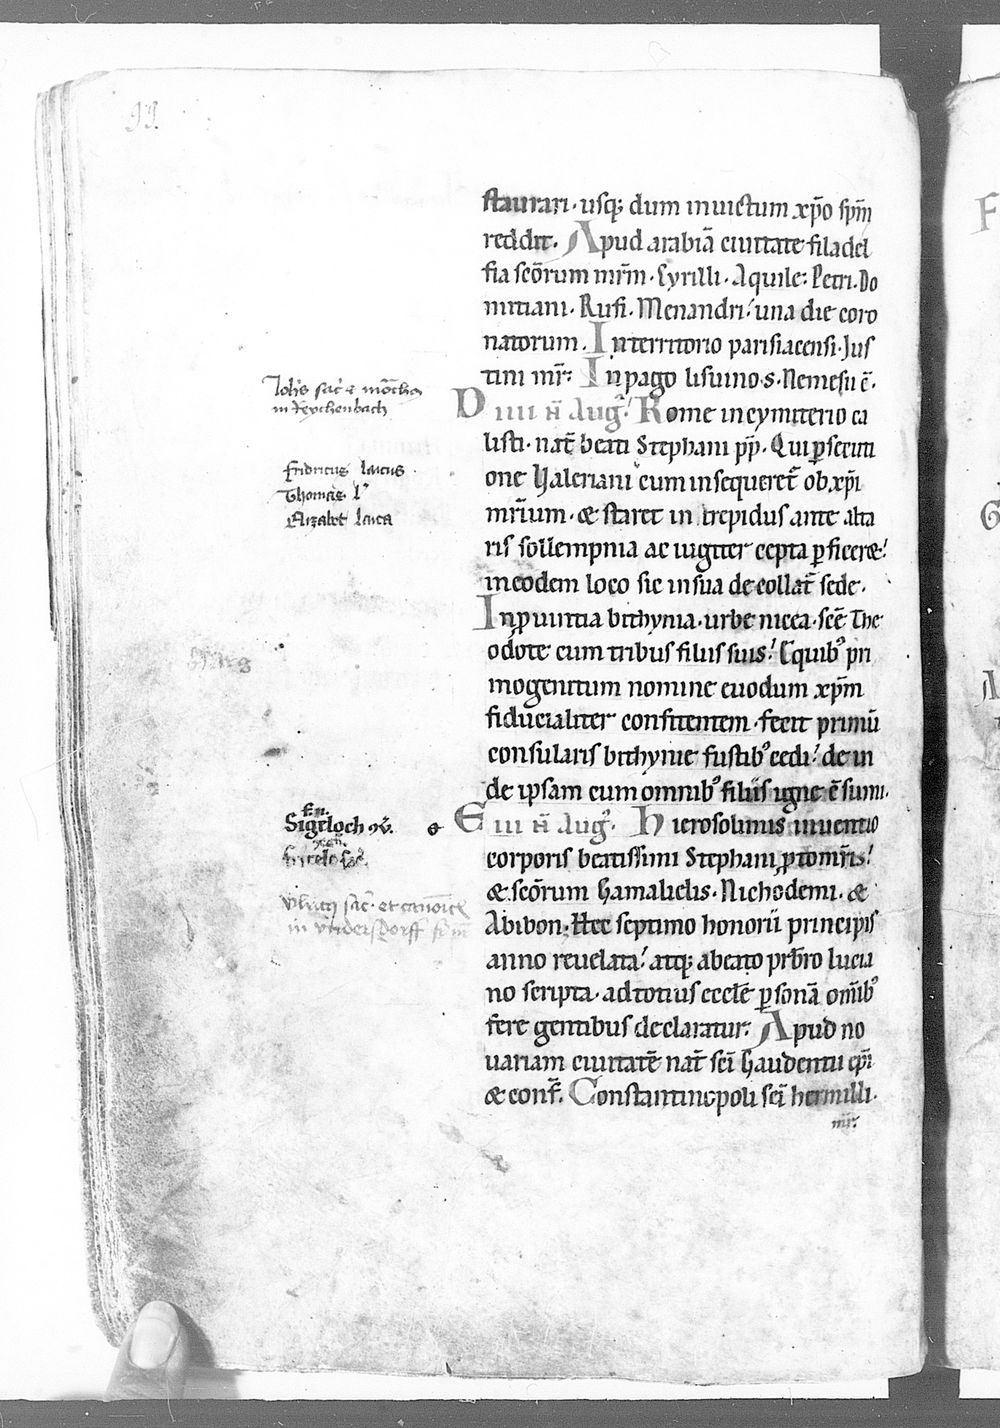 staurari · usq; dum inuictum xp̄o sp̄m
reddit. Apud arabiā ciuitate filadel
fia sc̄orum mr̄m · Cyrilli · Aquile · Petri · Do
mitiani · Rufi · Menandri · una die coro
natorum. In territorio parisiacensi · Jus
tini mr̄. In pago lisuino · s · Nemesii c̄.
D iiii n̄ Aug̃. Rome in cymiterio ca
listi · nat̄ beati Stephani pp̄. Qui ꝑsecuti
one Valeriani cum insequeret̄ ob xp̄i
mr̄ium · & staret intrepidus ante alta
ris sollempnia ac iugiter cepta ꝑficeret
in eodem loco sic in sua decollat̄ sede.
In ꝓuintia bithynia · urbe nicea · sc̄e The
odote cum tribus filiis suis. E quibꝰ pri
mogenitum nomine euodum xp̄m
fiducialiter confitentem · fecit primū
consularis bithynie fustibꝰ cedi · de in
de ipsam cum omnibꝰ filiis igne c̄sumi.
E iii n̄ Aug̃. Hierosolimis inuentio
corporis beatissimi Stephani ꝓtomr̄is
& sc̄orum Gamalielis · Nichodemi · &
Abibon. Hec septimo honorii principis
anno reuelata · atq; a beato pr̄bro lucia
no scripta · ad totius eccl̄e ꝑsonā om̄ibꝰ
fere gentibus declaratur. Apud no
uariam ciuitatē nat̄ sc̄i Gaudentii ep̄i
& conf̄. Constantinopoli sc̄i hermilli.
mr̄.
Joh̄s sac̄ · et mōchꝯ
in Reychenbach
Fridricus laicus
Thomas l
Elizabet laica
Sigeloch
Ulricꝯ sac̄ · et canoīcꝯ
in Vnderstorff